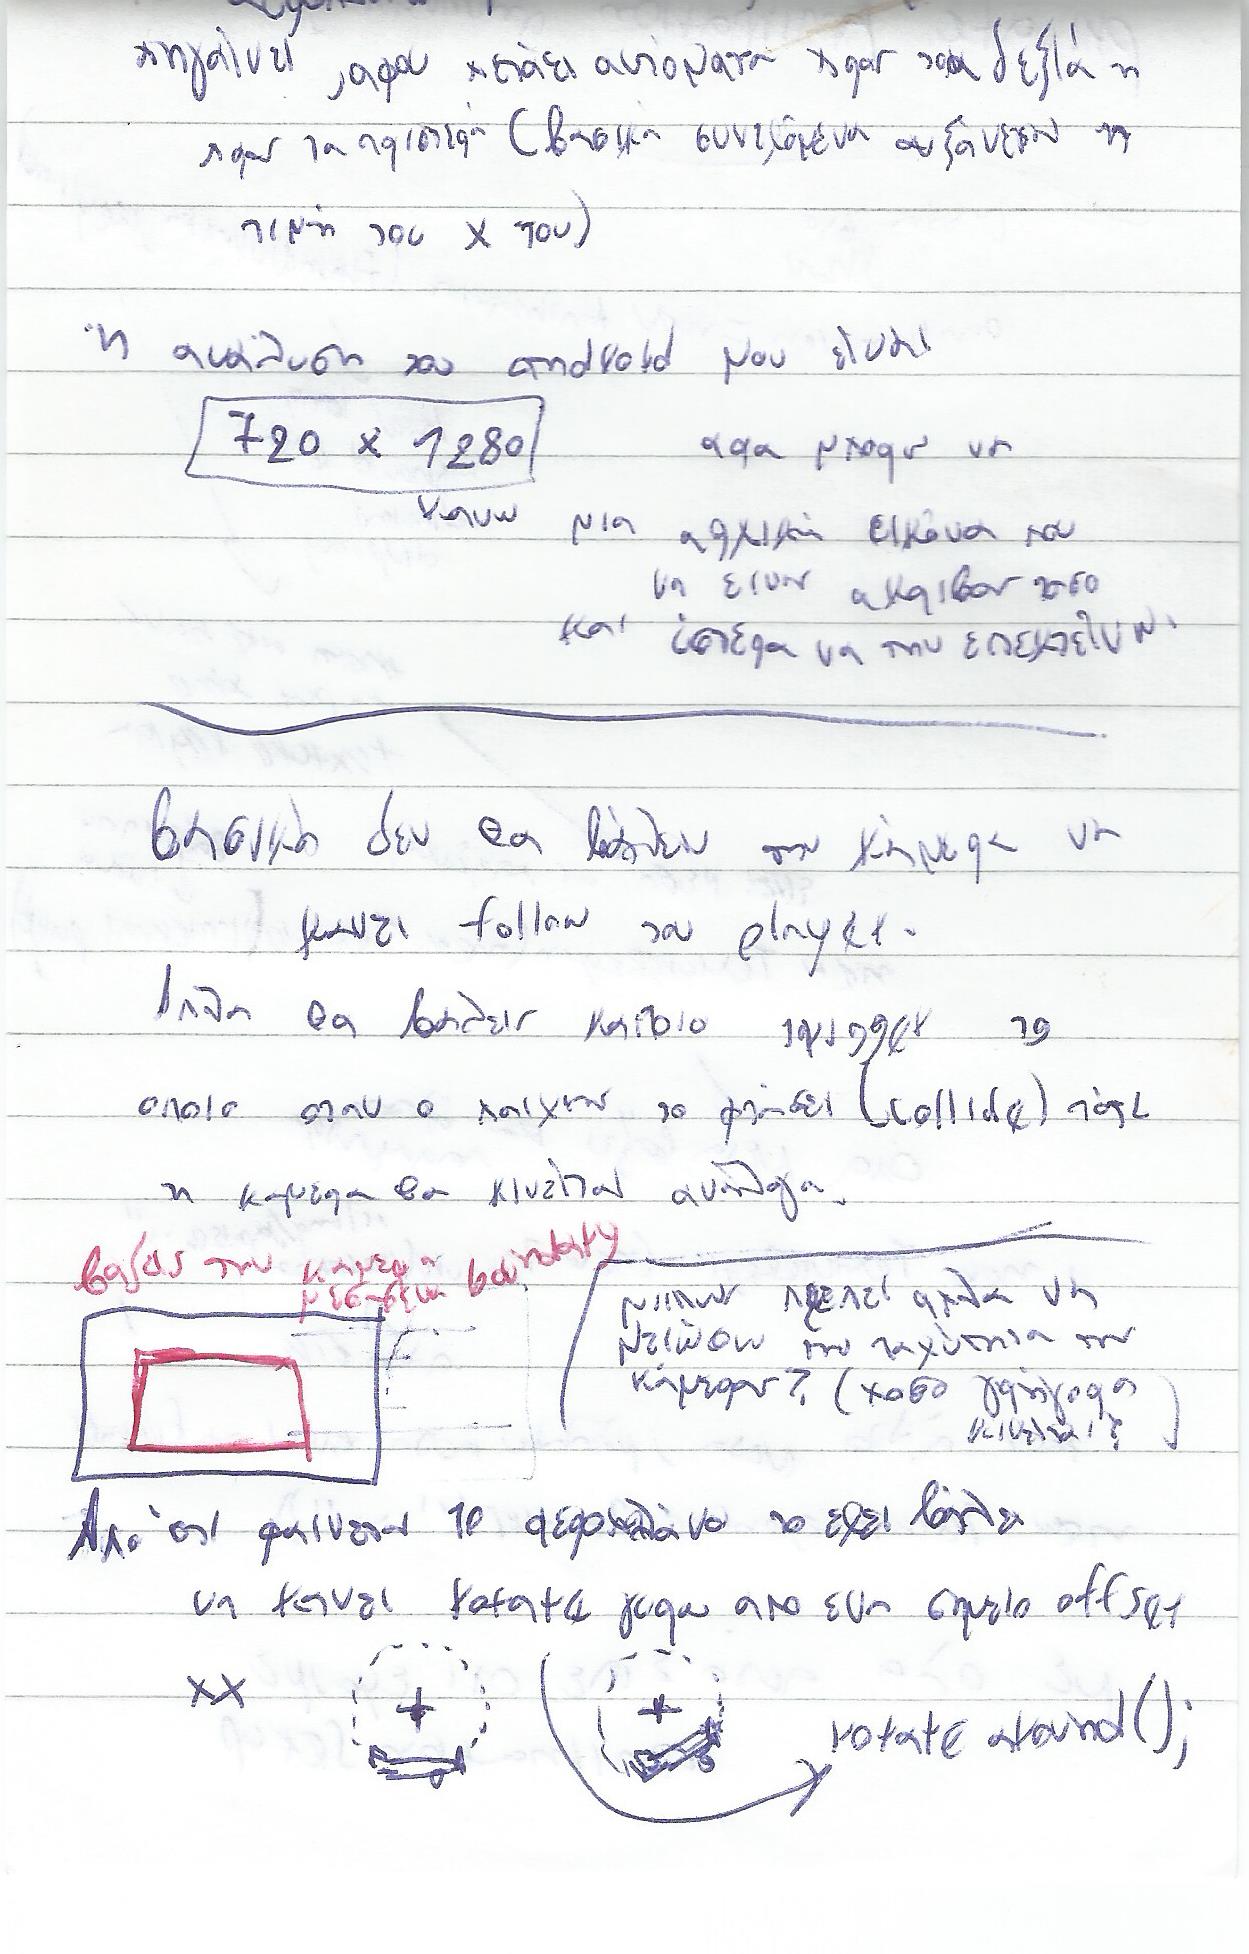 πηγαίνει, αφου πετάει αυτόματα προς τα δεξιά η
προς τα αριστερά (βασικά συνεχόμενα αυξάνεται η
τιμή του x του)
Η ανάλυση του android μου είναι
720 x 1280
αρα μπορω να
κανω μια αρχική εικόνα που
να ειναι ακριβως τοσο
και ύστερα να την επεκτείνω.
Βασικά δεν θα βάλεις την κάμερα να
κανει follow τον player.
Απλα θα βαλεις καποιο trigger το
οποιο οταν ο παιχτης το φτάσει (collide) τότε
η καμερα θα κινείται ανάλογα.
βαζεις την καμερα
μεσα σε ενα boundary
μηπως πρέπει απλα να
μειώσω την ταχύτητα της
κάμερας? (ποσο γρήγορα
κινείται;)
Απ' ότι φαίνεται το αεροπλάνο το εχει βάλει
να κανει rotate γυρω απο ενα σημειο offset
xx
rotate around();